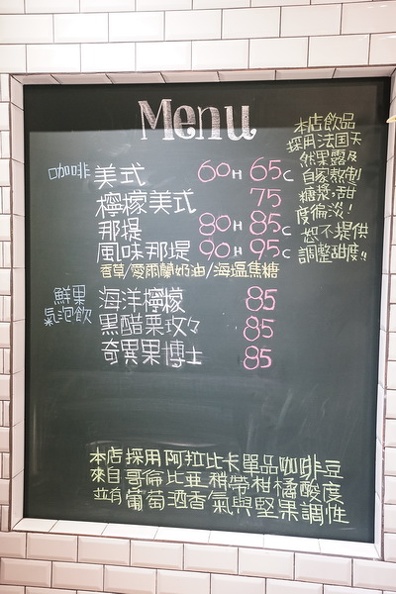 Menu
咖啡 美式 60H 65C
檸檬美式 75
那堤 80H 85C
風味那堤 90H 95C
香草/愛爾蘭奶油/海塩焦糖
鮮果
氣泡飲
海洋檸檬 85
黑醋栗玫々 85
奇異果博士 85
本店飲品
採用法国天
然果露及
自家熬制
糖漿,甜
度偏淡!
恕不提供
調整甜度!!
本店採用阿拉比卡單品咖啡豆
來自哥倫比亞稍帶柑橘酸度
並有葡萄酒香氣與堅果調性